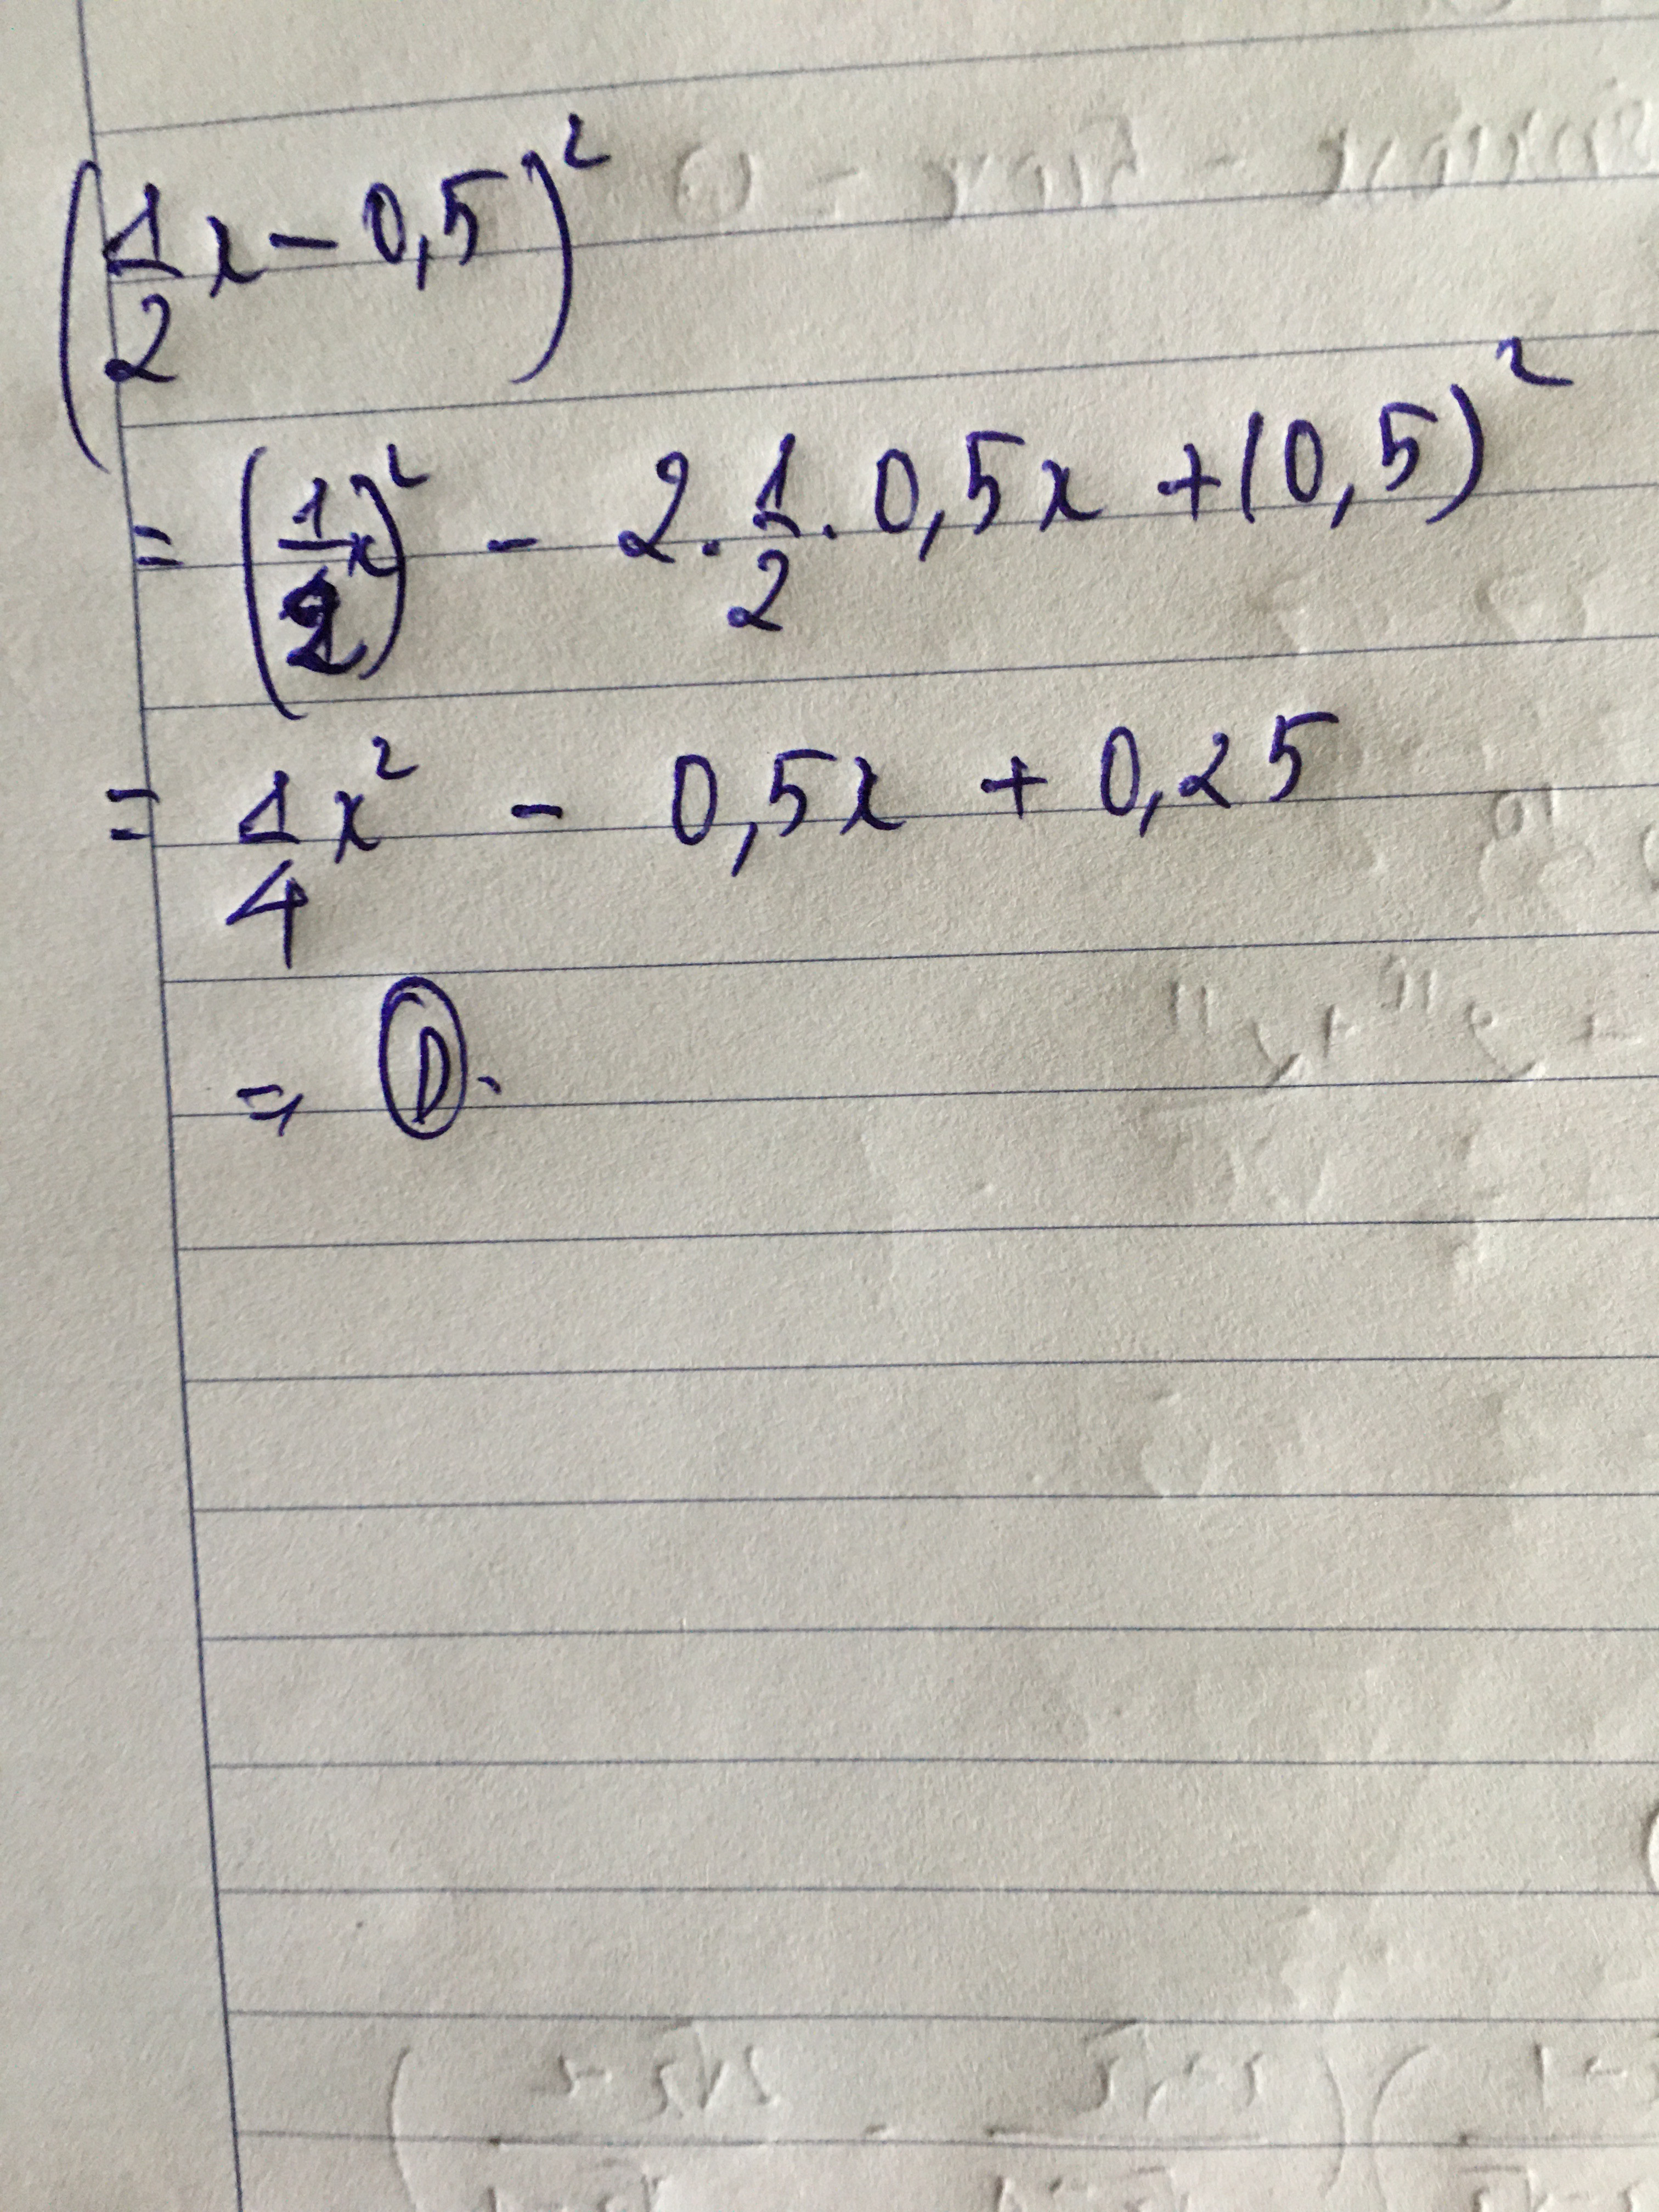 (1/2 x - 0,5)²
= (1/2 x)² - 2 . 1/2 . 0,5x + (0,5)²
= 1/4 x² - 0,5x + 0,25
⇒ Ⓓ.